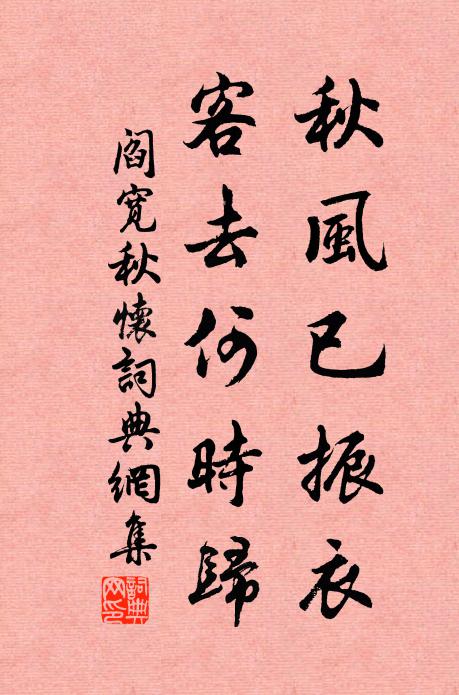 秋風已振衣
客去何時歸
閻寬秋懷詞典網集
詞典網印